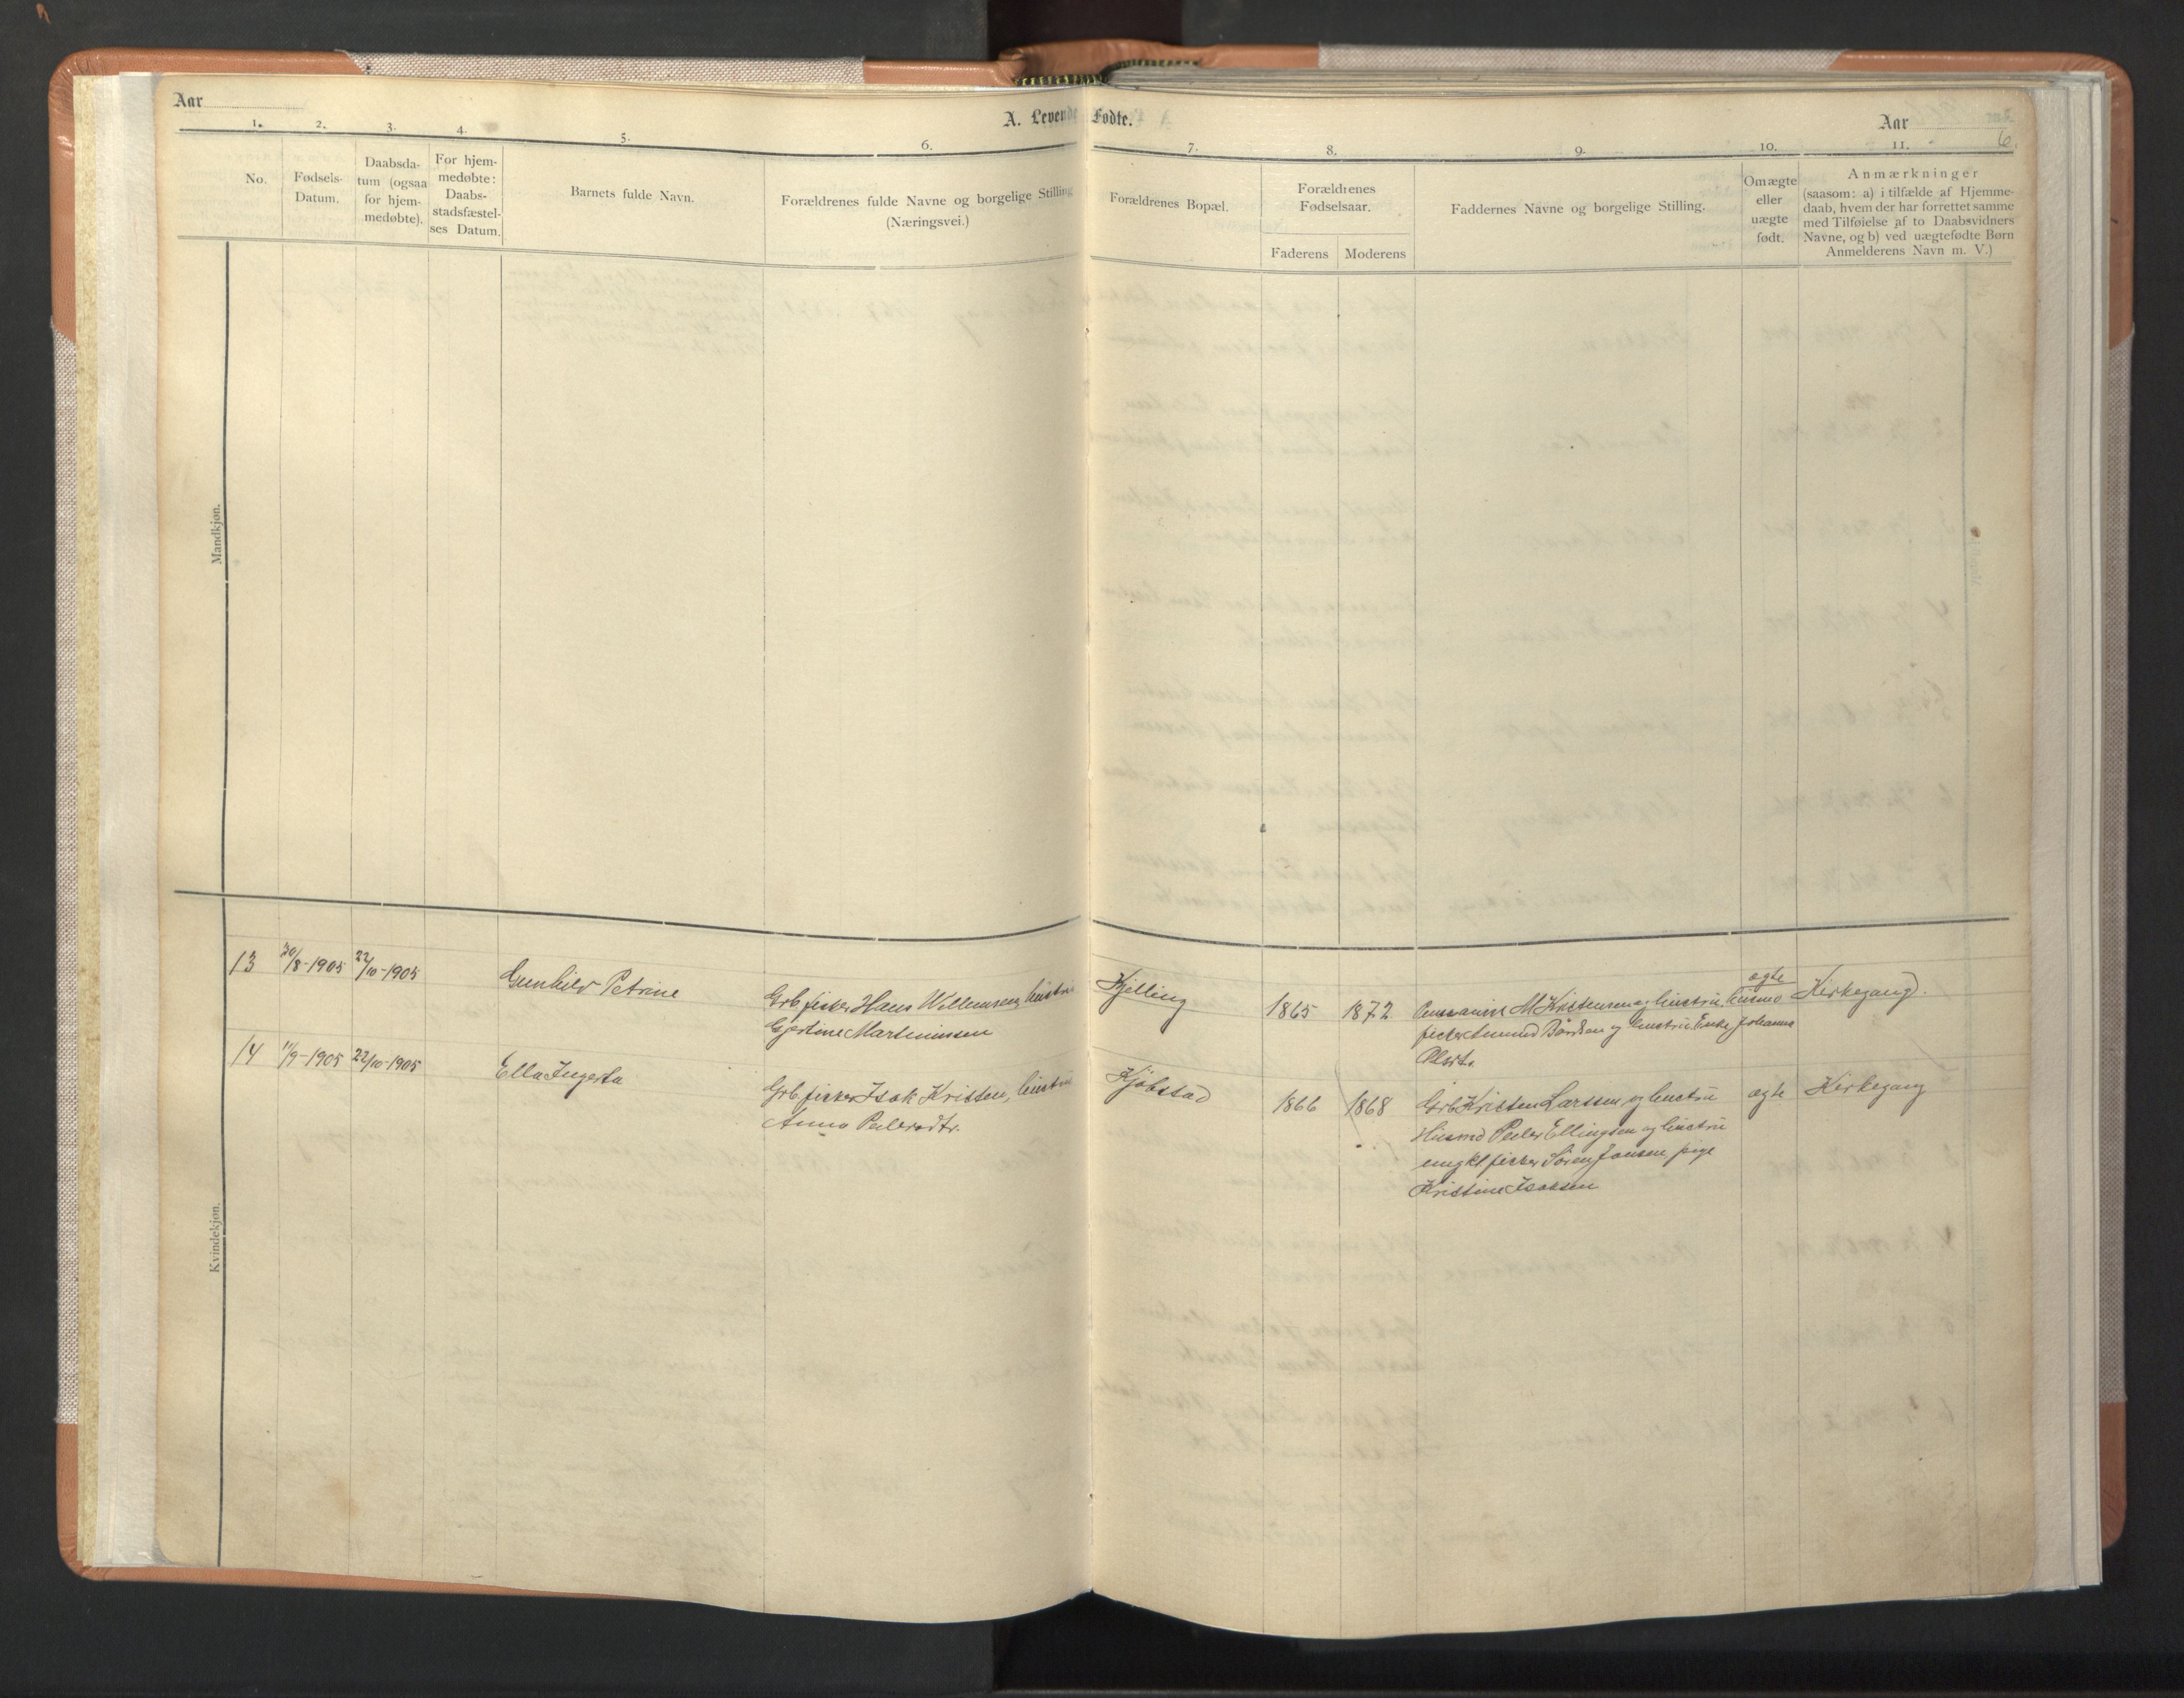 Aar
A. Levende Fødte.
Aar
6.
1. 2. 3. 4. 5. 6. 7. 8. 9. 10. 11.
No.
Fødsels-
Datum.
Daabsda-
tum (ogsaa
for hjem-
medøbte).
For hjem-
medøbte:
Daabs-
stadsfæstel-
ses Datum.
Barnets fulde Navn.
Forældrenes fulde Navne og borgelige Stilling
(Næringsvei.)
Forældrenes Bopæl.
Forældrenes
Fødselsaar.
Faderens Moderens
Faddernes Navne og borgelige Stilling.
Omægte
eller
uægte
født.
Anmærkninger
(saasom: a) i tilfælde af Hjemme-
daab, hvem der har forrettet samme
med Tilføielse af to Daabsvidners
Navne, og b) ved uægtefødte Børn
Anmelderens Navn m. V.)
Mandkjøn.
Kvindekjøn.
13 30/8-1905 22/10-1905
Gunhild Petrine
Grb fisker Hans Willumsen, hustru
Gjertine Martinussen
Kjelling
1865 1872
M Kristensen og hustru, husmd
fisker Amund Bårdsen og hustru Enke Johanna
Olsdtr.
ægte
Kirkegang.
14 11/9-1905 22/10-1905
Ella Ingerta
Grb fisker Isak Kristen, hustru
Anna Pedersdtr.
Kjøbstad
1866 1868
Grb Kristen Larssen og hustru
Husmd Peder Ellingsen og hustru
ungkl fisker Søren Jansen, pige
Kristine Isaksen
ægte
Kirkegang